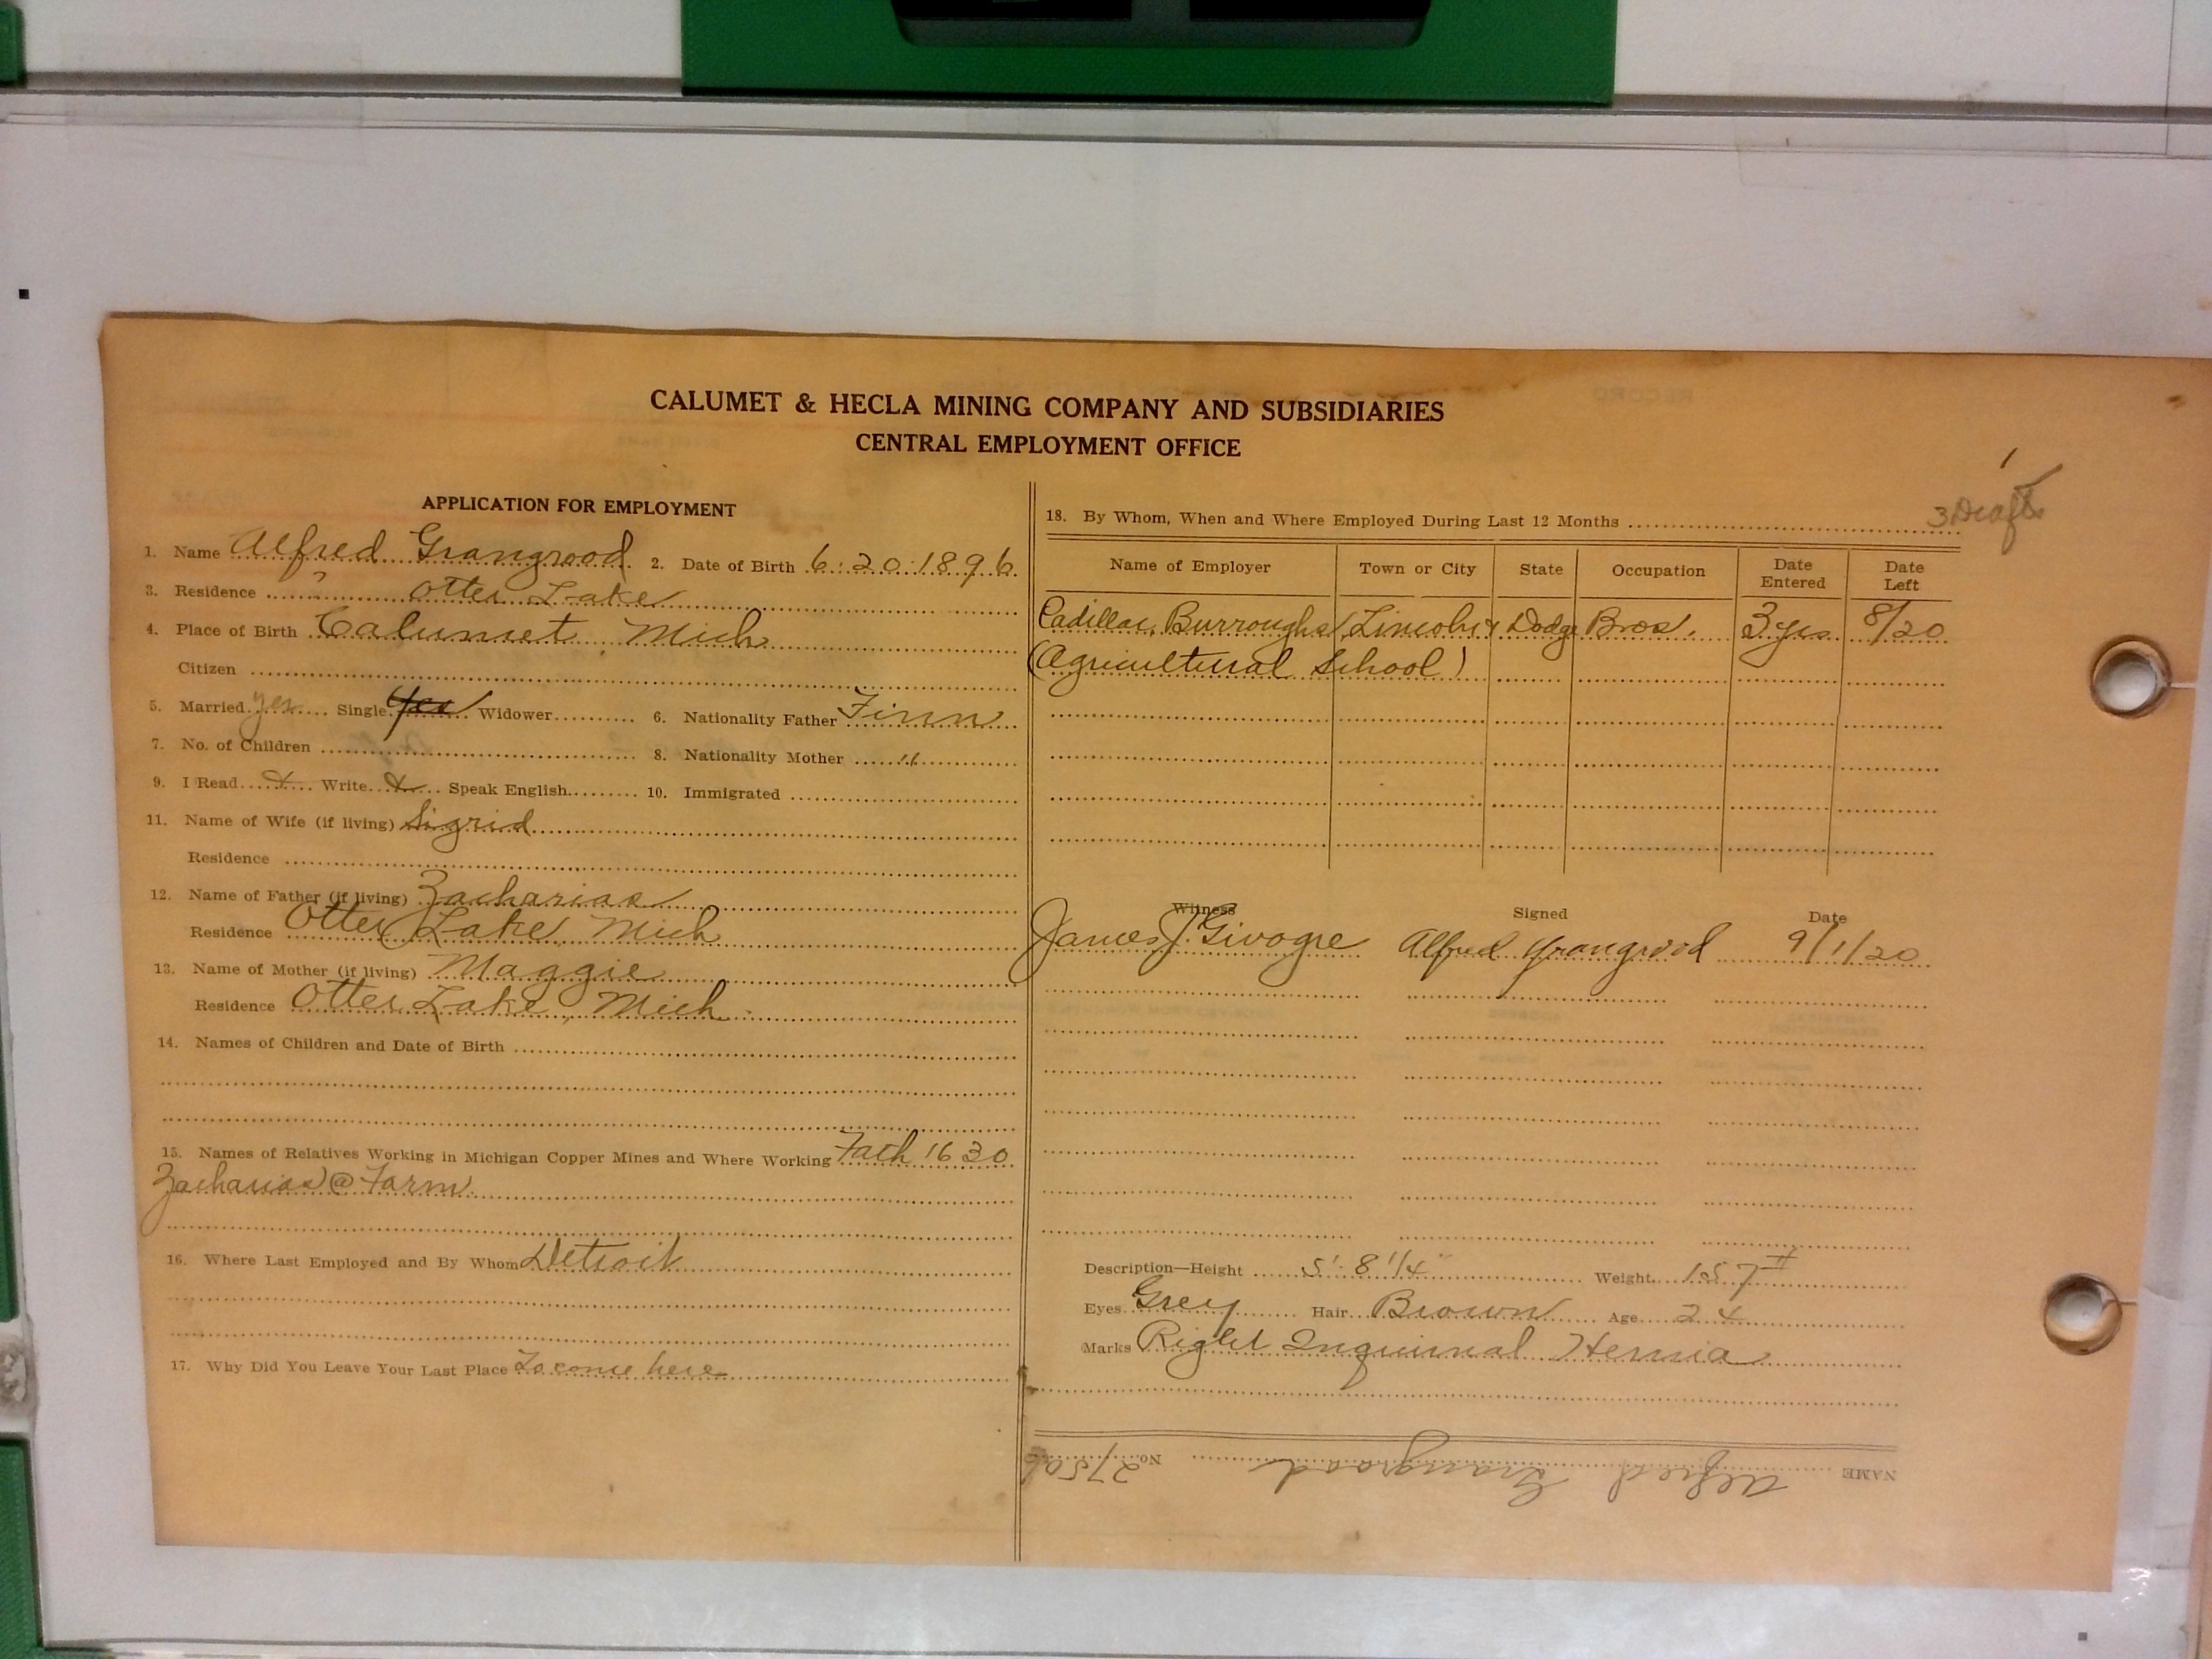 CALUMET & HECLA MINING COMPANY AND SUBSIDIARIES
CENTRAL EMPLOYMENT OFFICE
APPLICATION FOR EMPLOYMENT
1. Name Alfred Grangrood. 2. Date of Birth 6-20-1896
3. Residence Otter Lake
4. Place of Birth Calumet, Mich
Citizen
5. Married yes Single yes Widower 6. Nationality Father Finn
7. No. of Children 8. Nationality Mother "
9. I Read x Write x Speak English 10. Immigrated
11. Name of Wife (if living) Sigrid
Residence
12. Name of Father (if living) Zacharias
Residence Otter Lake, Mich
13. Name of Mother (if living) Maggie
Residence Otter Lake, Mich.
14. Names of Children and Date of Birth
15. Names of Relatives Working in Michigan Copper Mines and Where Working Fath 1630
Zacharias @ Farm
16. Where Last Employed and By Whom Detroit
17. Why Did You Leave Your Last Place To come here
3 Draft
18. By Whom, When and Where Employed During Last 12 Months
Name of Employer Town or City State Occupation Date Entered Date Left
Cadillac, Burroughs, Lincoln & Dodge Bros. 3 yrs 8/20
(Agricultural School)
Witness Signed Date
James J. Alfred Grangrood 9/1/20
Description—Height 5' 8 1/4" Weight 157 #
Eyes Grey Hair Brown Age 24
Marks Right Inguinal Hernia
NAME Alfred Grangrood No. 27506